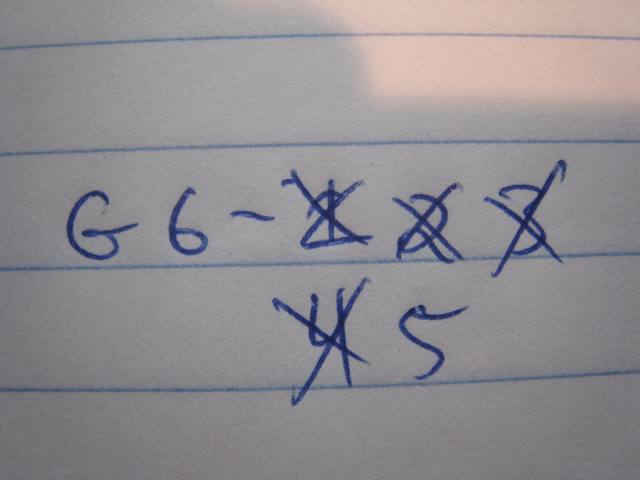 G6-1 2 3
4 5